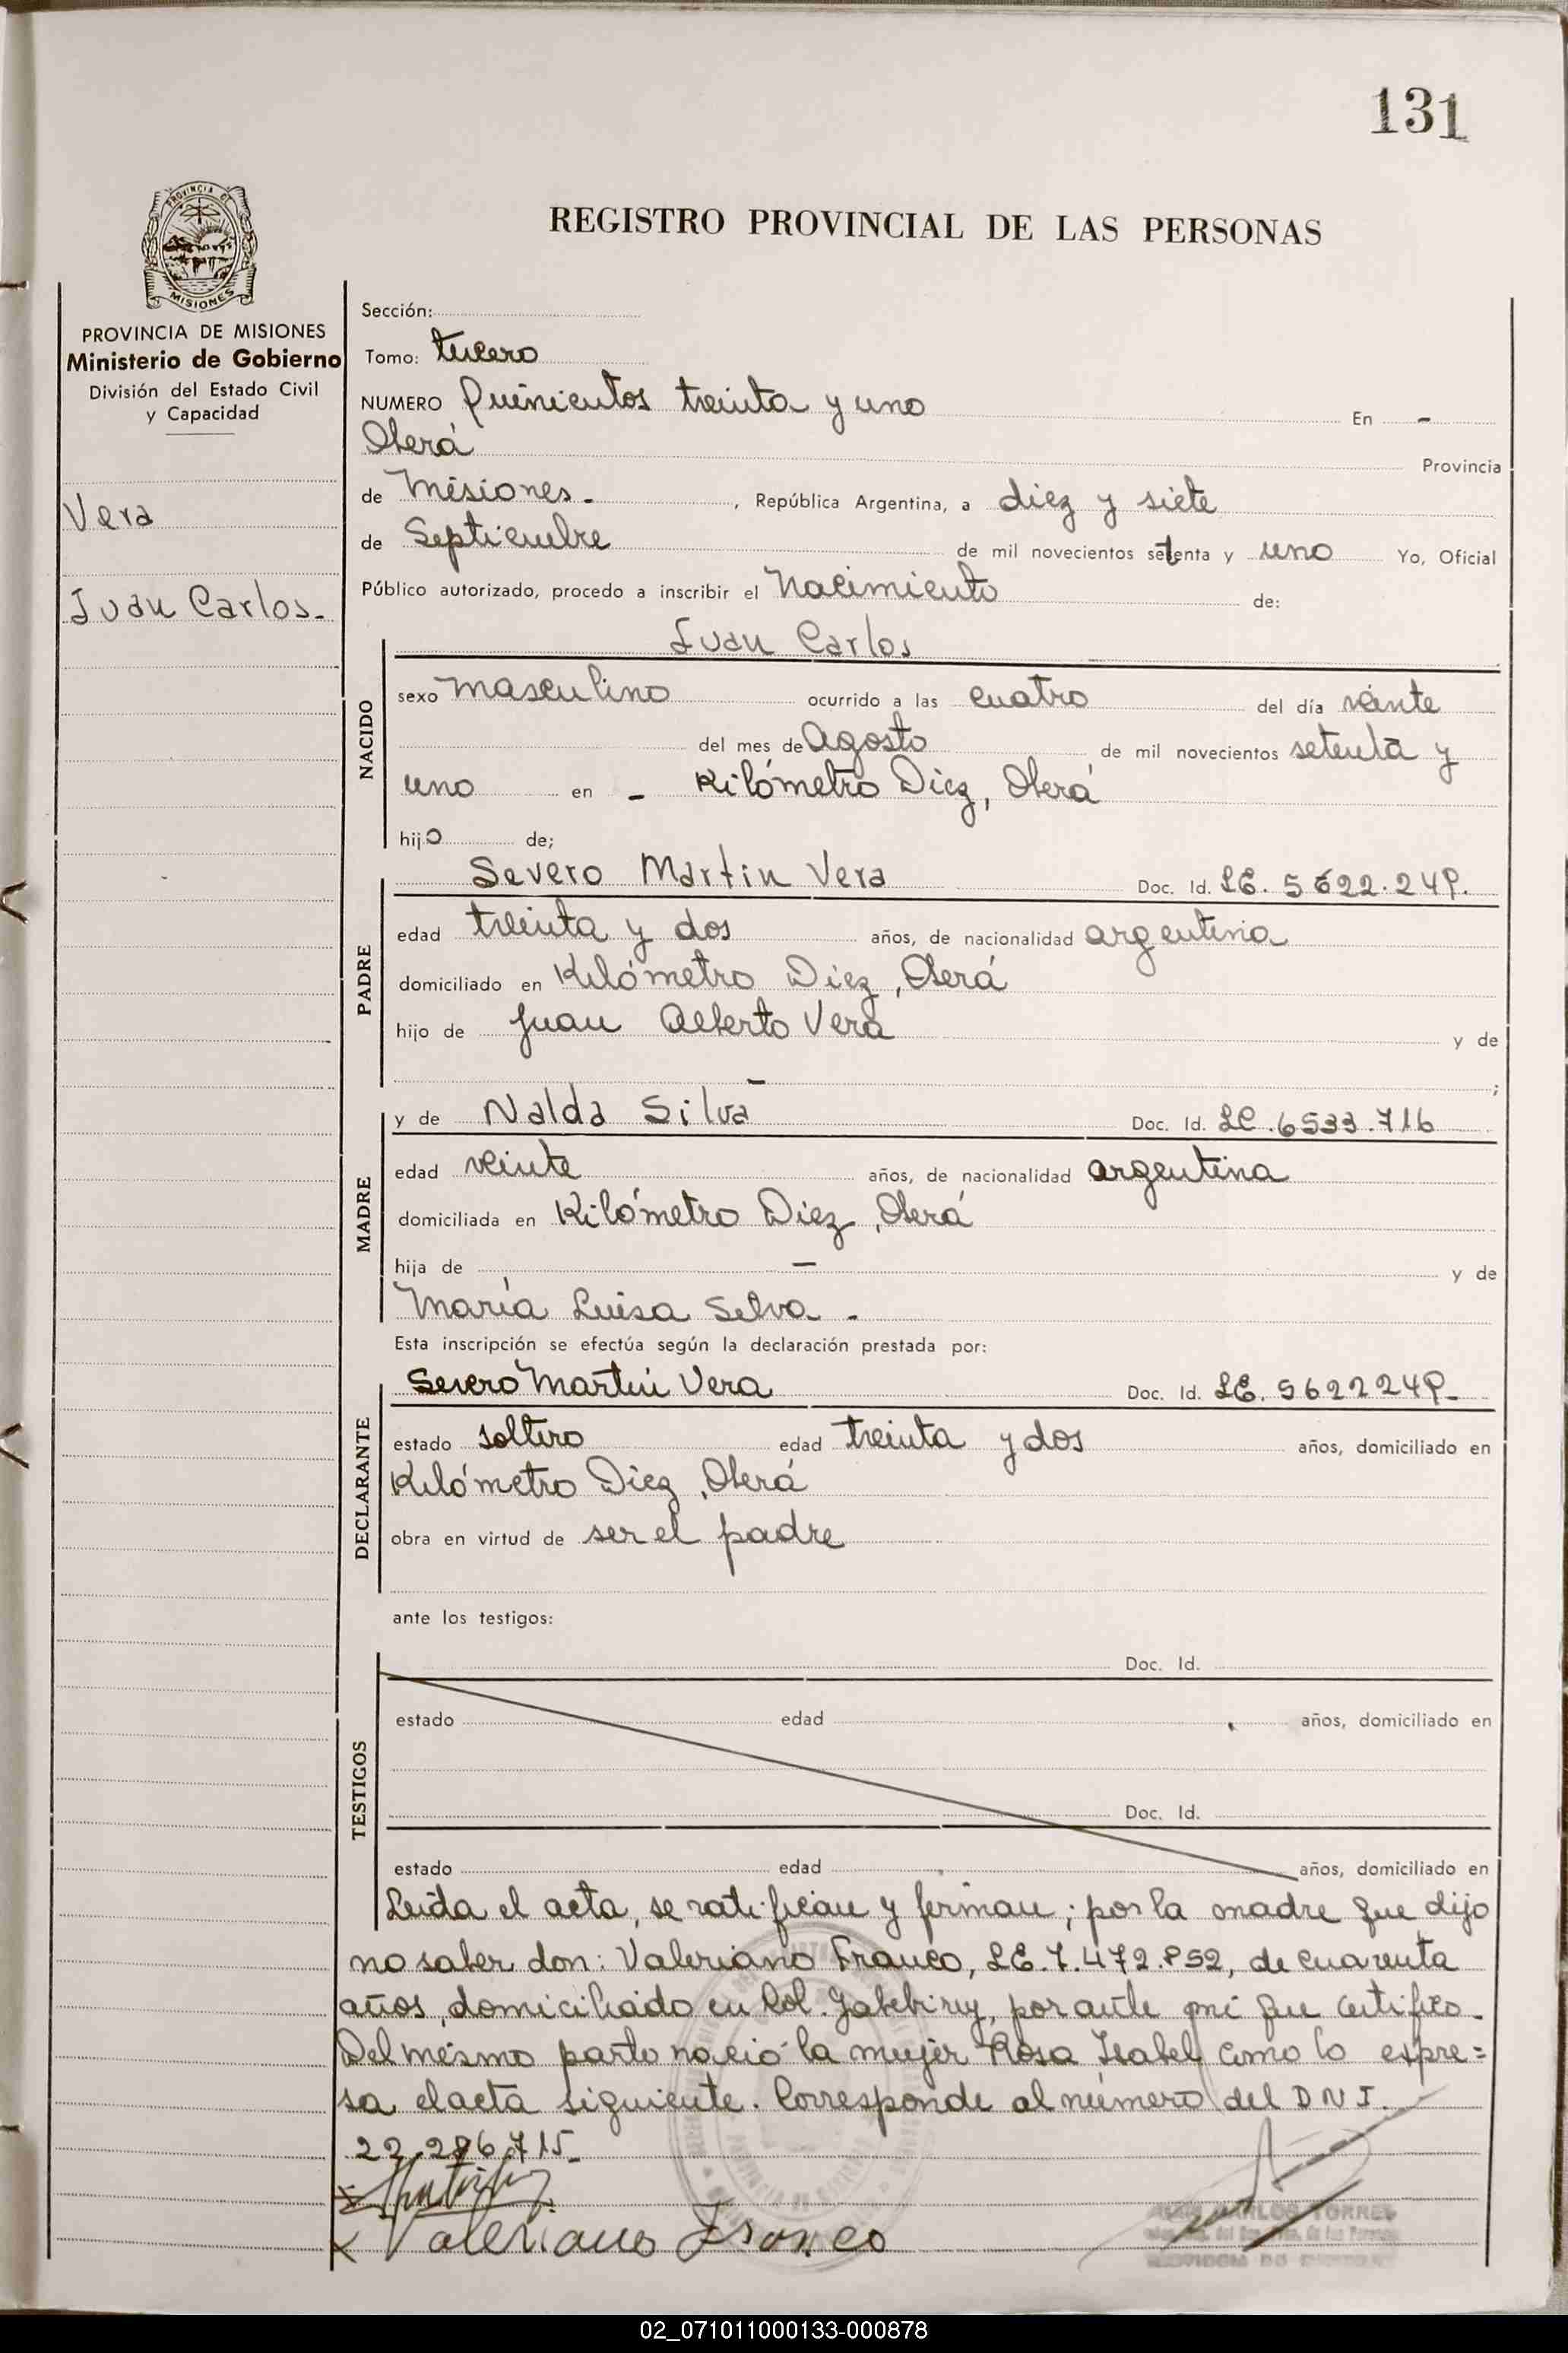 131
REGISTRO PROVINCIAL DE LAS PERSONAS
PROVINCIA DE
MISIONES
PROVINCIA DE MISIONES
Ministerio de Gobierno
División del Estado Civil
y Capacidad
Vera
Juan Carlos.-
Sección:
Tomo: tercero
NUMERO Quinientos treinta y uno En -
Oberá Provincia
de Misiones.- , República Argentina, a diez y siete
de Septiembre de mil novecientos setenta y uno Yo, Oficial
Público autorizado, procedo a inscribir el Nacimiento de:
Juan Carlos
NACIDO
sexo masculino ocurrido a las cuatro del día veinte
del mes de Agosto de mil novecientos setenta y
uno en - Kilómetro Diez, Oberá
hijo de;
PADRE
Severo Martin Vera Doc. Id. LE. 5622.248.
edad treinta y dos años, de nacionalidad argentina
domiciliado en Kilómetro Diez, Oberá
hijo de Juan Alberto Vera y de
- ;
MADRE
y de Nalda Silva Doc. Id. LC.6533.716
edad veinte años, de nacionalidad argentina
domiciliada en Kilómetro Diez, Oberá
hija de - y de
María Luisa Silva.-
Esta inscripción se efectúa según la declaración prestada por:
DECLARANTE
Severo Martin Vera Doc. Id. LE. 5622248-
estado soltero edad treinta y dos años, domiciliado en
Kilómetro Diez, Oberá
obra en virtud de ser el padre
ante los testigos:
TESTIGOS
Doc. Id.
estado edad años, domiciliado en
Doc. Id.
estado edad años, domiciliado en
Leida el acta, se ratifican y firman; por la madre que dijo
no saber don: Valeriano Franco, LE.7.472.852, de cuarenta
años, domiciliado en Col. Yabebiry, por ante mí que certifico.-
Del mismo parto nació la mujer Rosa Isabel como lo expre=
sa el acta siguiente. Corresponde al número del DNI.
22.286.715.-
Valeriano Franco
CARLOS TORRES
02_071011000133-000878